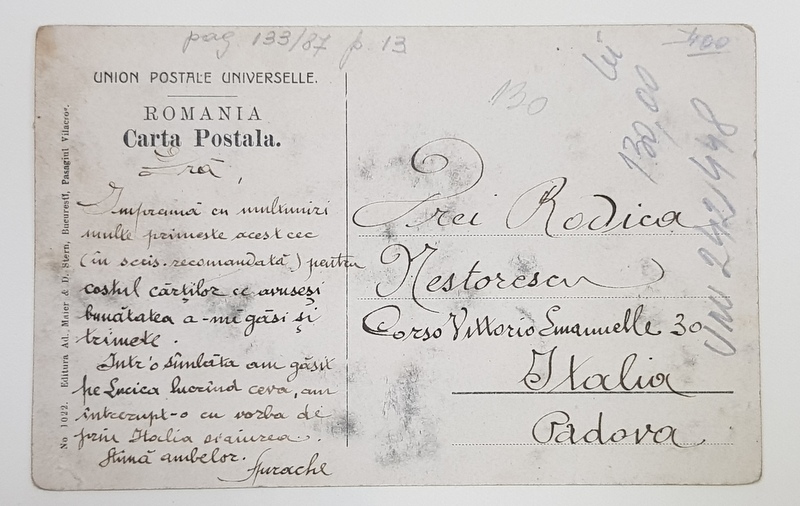 pag 133/87 p. 13
400
UNION POSTALE UNIVERSELLE.
ROMANIA
Carta Postala.
130
lei
130,00
No 1022. Editura Ad. Maier & D. Stern, Bucuresti, Pasagiul Vilacros.
Împreună cu mulțumiri
multe primește acest cec
(în scris. recomandată) pentru
costul cărților ce avuseși
bunătatea a-mi găsi și
trimete.
Într'o sîmbăta am găsit
pe Lucica lucrînd ceva, am
întrerupt-o cu vorba de
prin Italia
Stimă ambelor.
Rodica
Nestorescu
Corso Vittorio Emanuelle 30
Italia
Padova